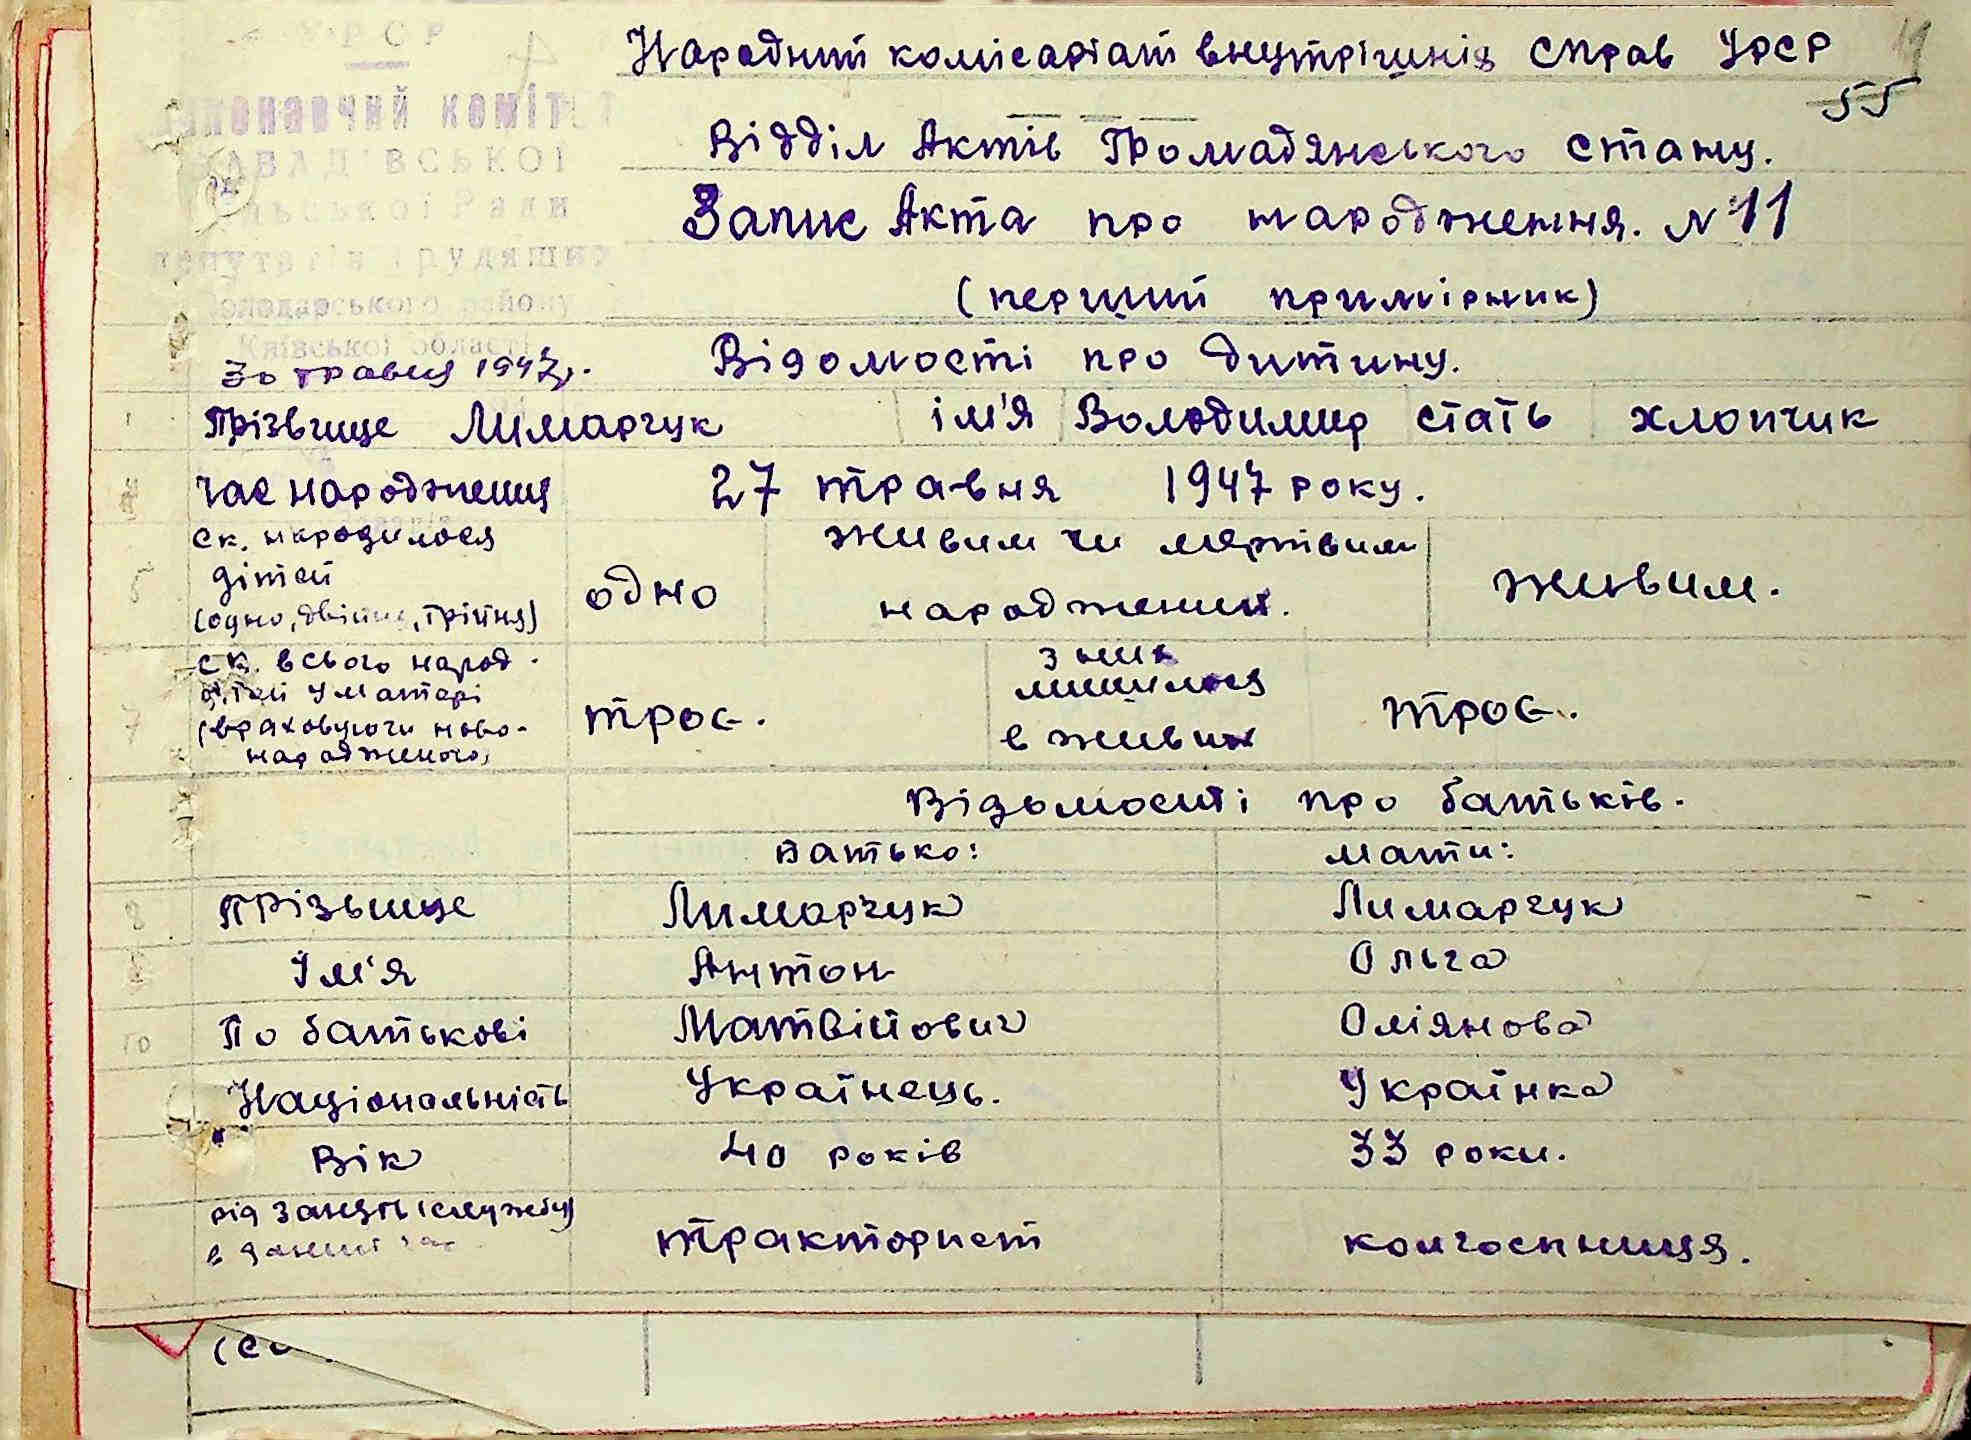 УРСР
Народний комісаріат внутрішніх справ УРСР
19
55
виконавчий комітет
ЗАВАДІВСЬКОЇ
Сільської Ради
депутатів трудящих
Володарського району
Київської області
Відділ Актів Громадянського стану.
Запис Акта про народження. №11
(перший примірник)
30 травня 1947р.
Відомості про дитину.
Прізвище Лимарчук ім'я Володимир стать хлопчик
час народження 27 травня 1947 року.
ск. народилося
дітей
(одно, двійня, трійня)
одно
живим чи мертвим
народжений.
живим.
ск. всього народ.
дітей у матері
(враховуючи ново-
народженого)
троє.
з них
лишилося
в живих
троє.
Відомості про батьків.
батько: мати:
8 Прізвище Лимарчук Лимарчук
Ім'я Антон Ольга
10 По батькові Матвійович Оліянова
Національність Українець. Українка
Вік 40 років 33 роки.
рід занять (службу)
в даний час
тракторист колгоспниця.